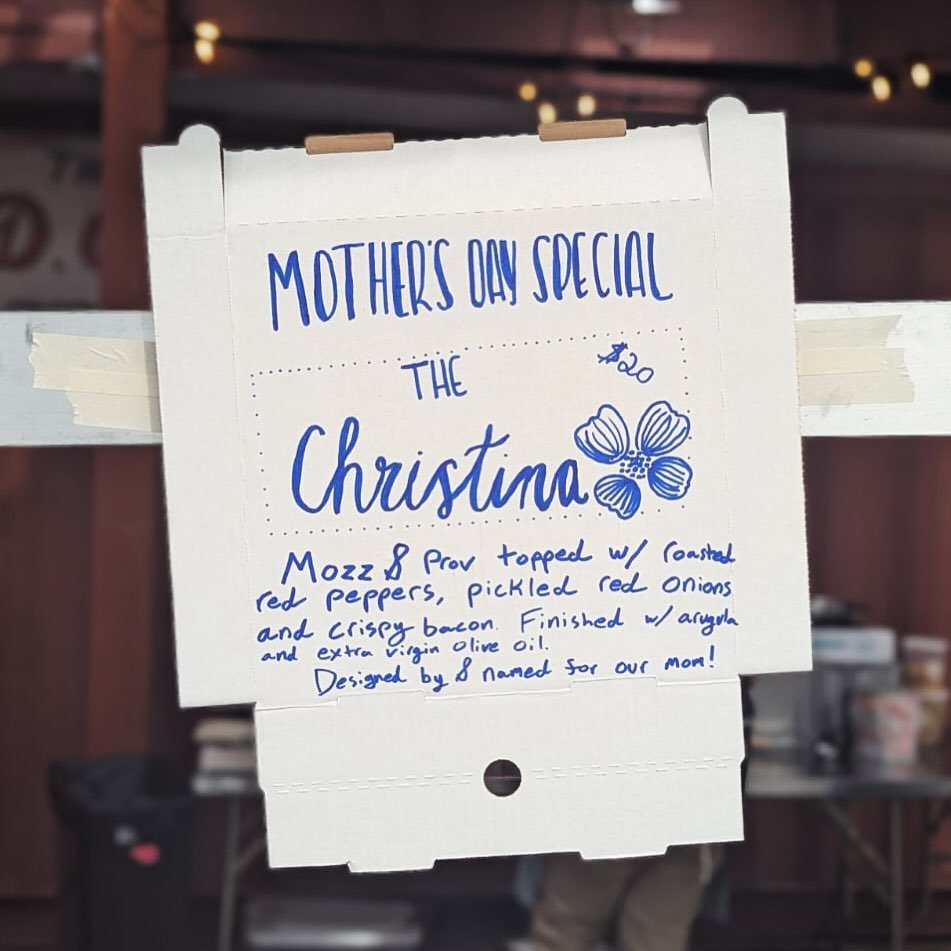 MOTHER'S DAY SPECIAL
THE
$20
Christina
Mozz & Prov topped w/ roasted
red peppers, pickled red onions
and crispy bacon. Finished w/ arugula
and extra virgin olive oil.
Designed by & named for our mom!